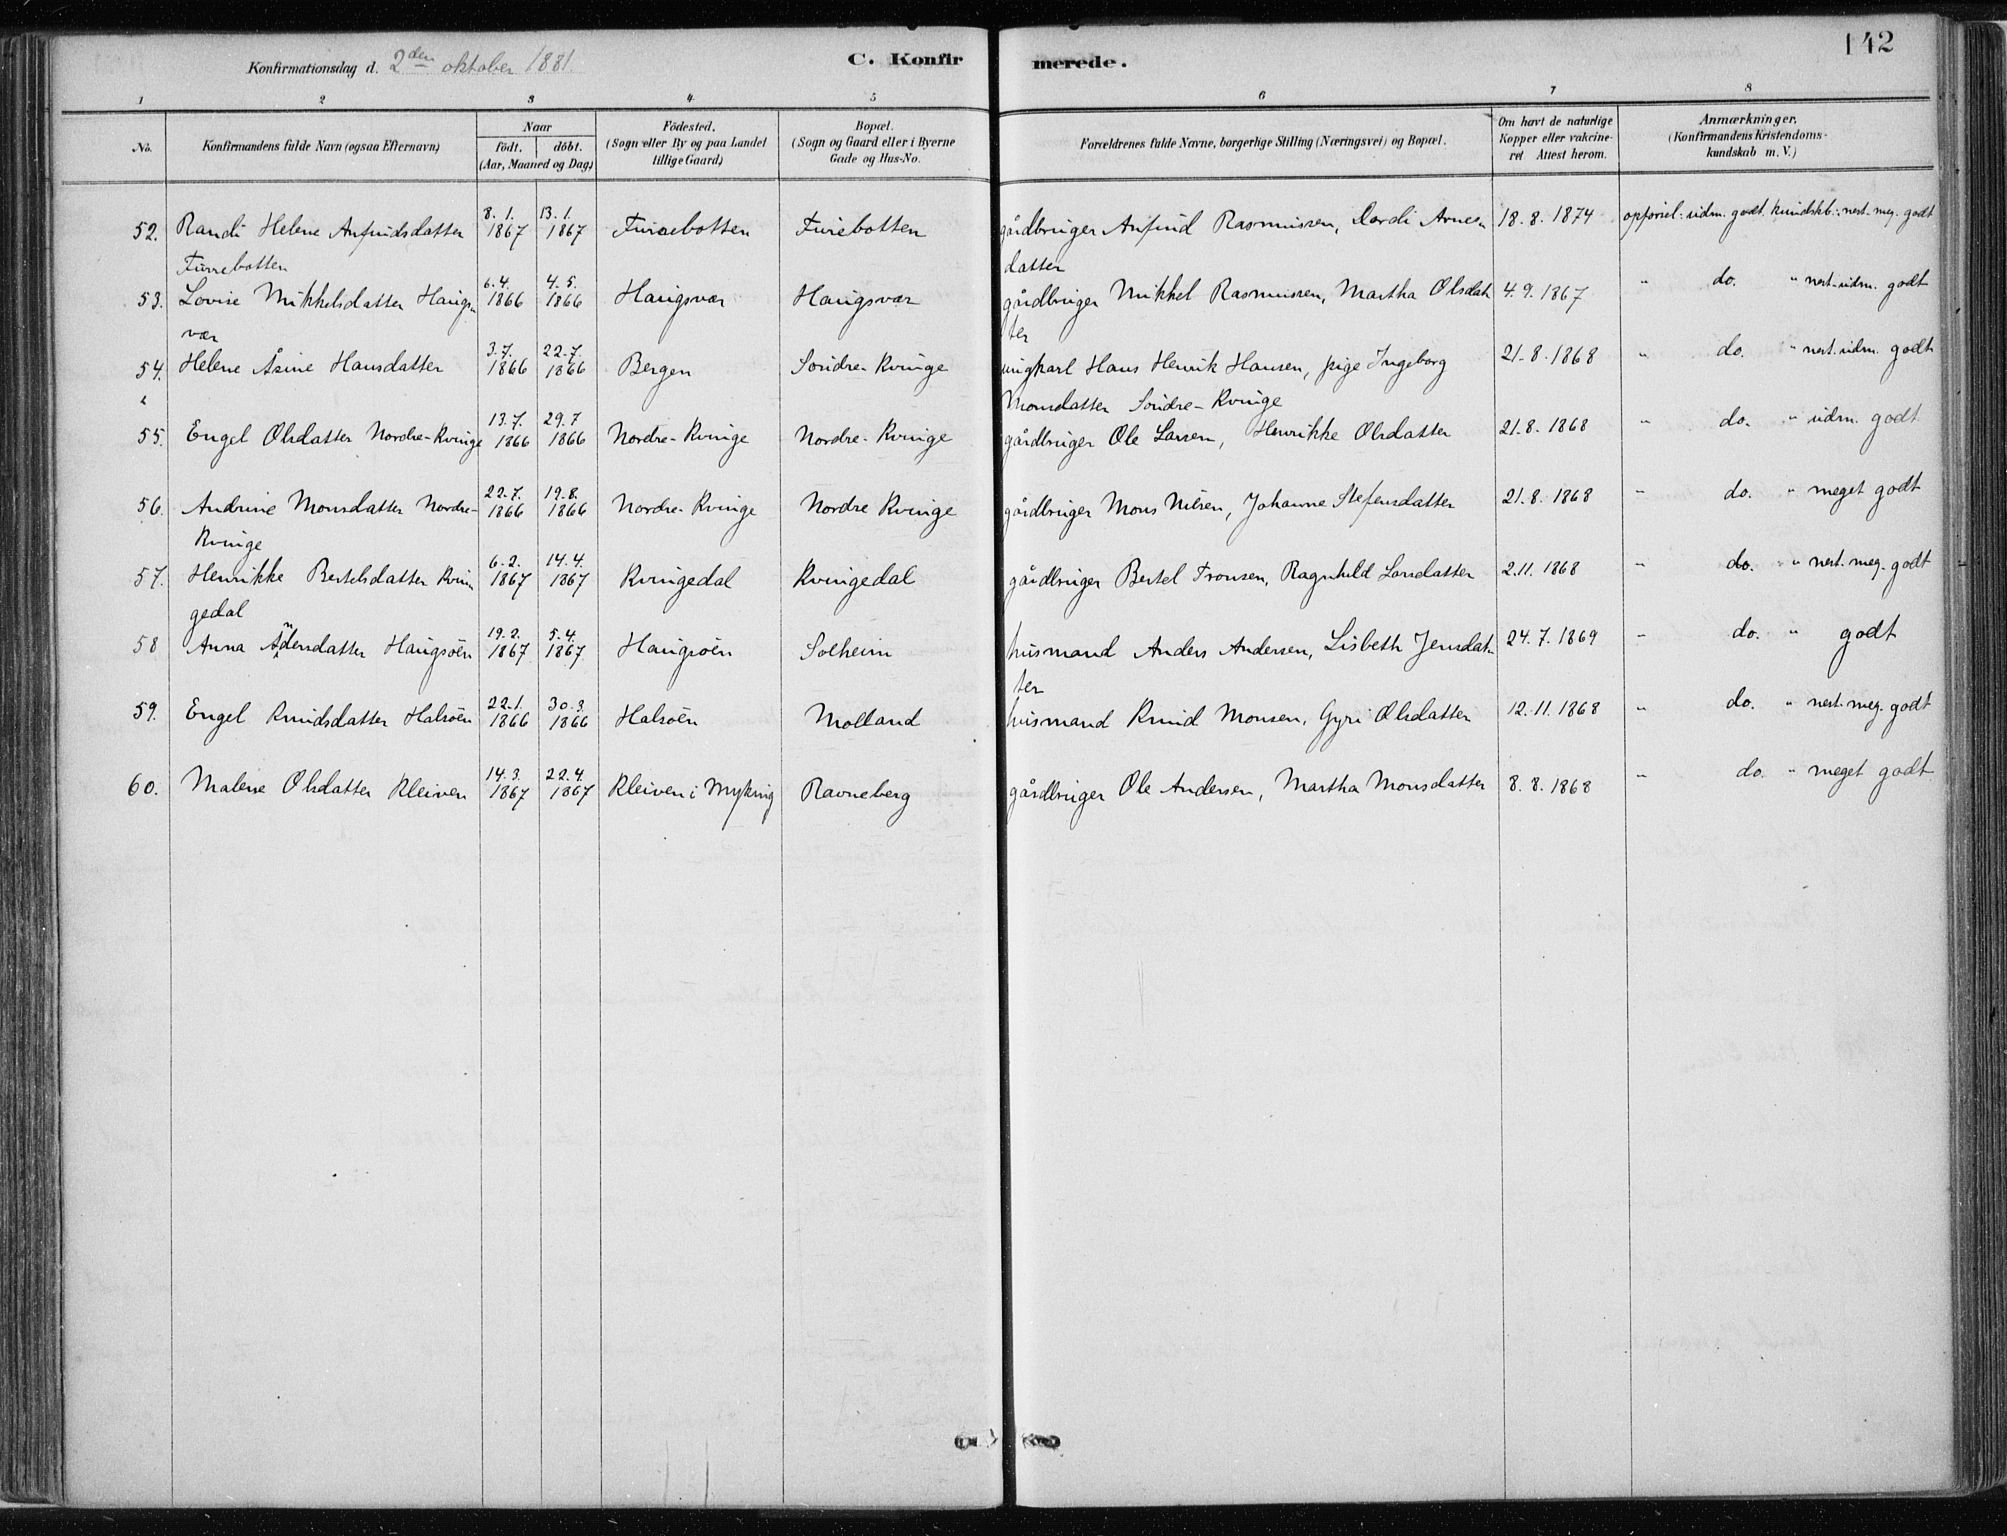 Konfirmationsdag d. 2den oktober 1881. C. Konfirmerede. 142
1 2 3 4 5 6 7 8
No. Konfirmandens fulde Navn (ogsaa Efternavn) Naar födt. döbt. (Aar, Maaned og Dag) Födested. (Sogn eller By og paa Landet tillige Gaard) Bopæl. (Sogn og Gaard eller i Byerne Gade og Hus-No. Forældrenes fulde Navne, borgerlige Stilling (Næringsvei) og Bopæl. Om havt de naturlige Kopper eller vakcineret Attest herom. Anmærkninger. (Konfirmandens Kristendomskundskab m. V.)
8. 1. 13. 1.
52. Randi Helene Anfindsdatter 1867 1867 Furrebotten Furebotten gårdbruger Anfind Rasmussen, Dordi Arnes- 18. 8. 1874 opförsel: udm. godt. kundskb.: nest. meg. godt
Furrebotten datter
6. 4. 4. 5.
53. Lovise Mikkelsdatter Haugs- 1866 1866 Haugsvær Haugsvær gårdbruger Mikkel Rasmussen, Martha Olsdat- 4. 9. 1867 " do. " nest. udm. godt
vær ter
3. 7. 22. 7.
54. Helene Åsine Hansdatter 1866 1866 Bergen Söndre-Kvinge ungkarl Hans Henrik Hansen, pige Ingeborg 21. 8. 1868 " do. " nest. udm. godt
Monsdatter Söndre-Kvinge
13. 7. 29. 7.
55. Engel Olsdatter Nordre-Kvinge 1866 1866 Nordre-Kvinge Nordre-Kvinge gårdbruger Ole Larsen, Henrikke Olsdatter 21. 8. 1868 " do. " udm. godt
22. 7. 19. 8.
56. Andrine Monsdatter Nordre- 1866 1866 Nordre-Kvinge Nordre Kvinge gårdbruger Mons Nilsen, Johanne Stefensdatter 21. 8. 1868 " do. " meget godt
Kvinge
6. 2. 14. 4.
57. Henrikke Bertelsdatter Kvin- 1867 1867 Kvingedal Kvingedal gårdbruger Bertel Tronsen, Ragnhild Larsdatter 2. 11. 1868 " do. " nest. meg. godt
gedal
19. 2. 5. 4.
58 Anna Andersdatter Haugsöen 1867 1867 Haugsöen Solheim husmand Anders Andersen, Lisbeth Jensdat- 24. 7. 1869 " do. " godt
ter
22. 1. 30. 3.
59. Engel Knudsdatter Halsöen 1866 1866 Halsöen Molland husmand Knud Monsen, Gyri Olsdatter 12. 11. 1868 " do. " nest. meg. godt
14. 3. 22. 4.
60. Malene Olsdatter Kleiven 1867 1867 Kleiven i Myking Ravneberg gårdbruger Ole Andersen, Martha Monsdatter 8. 8. 1868 " do. " meget godt